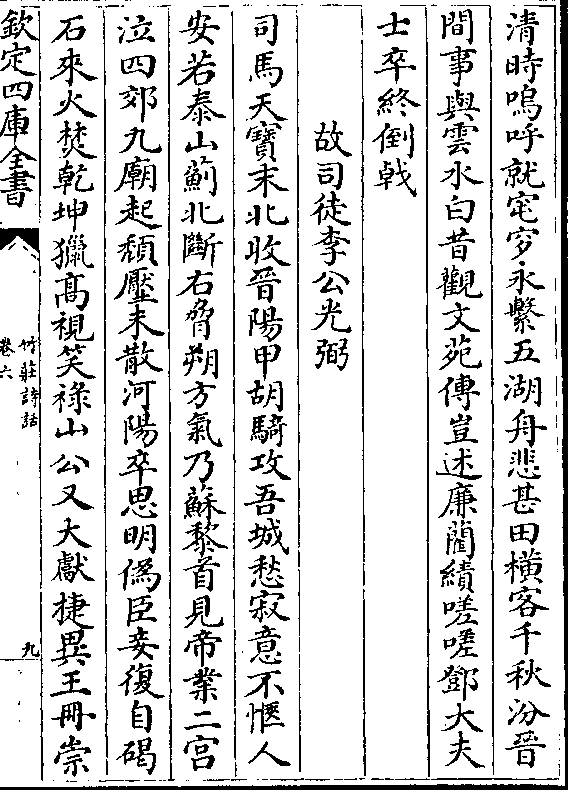 清時嗚呼就窀穸永繫五湖舟悲甚田横客千秋汾晉
間事與雲水白昔觀文苑傳豈述廉藺績嗟嗟鄧大夫
士卒終倒㦸
故司徒李公光弼
司馬天寶末北收晉陽甲胡騎攻吾城愁寂意不愜人
安若泰山薊北斷右脅朔方氣乃蘇黎首見帝業二宫
泣四郊九廟起頽壓未散河陽卒思明僞臣妾復自碣
石來火焚乾坤獵髙視笑禄山公又大獻捷異王冊崇
欽定四庫全書
竹莊詩話
卷六
九